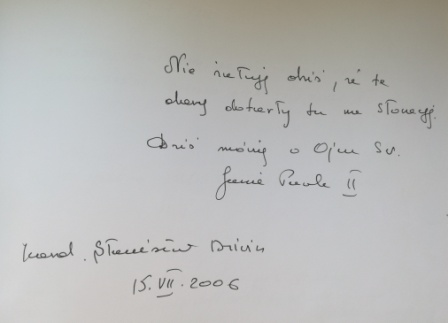 Nie żałuję dziś, że te
obrazy dotarły tu na Słowację.
Dziś mówię o Ojcu Św.
Janie Pawle II
Kard. Stanisław Dziwisz
15.VII.2006